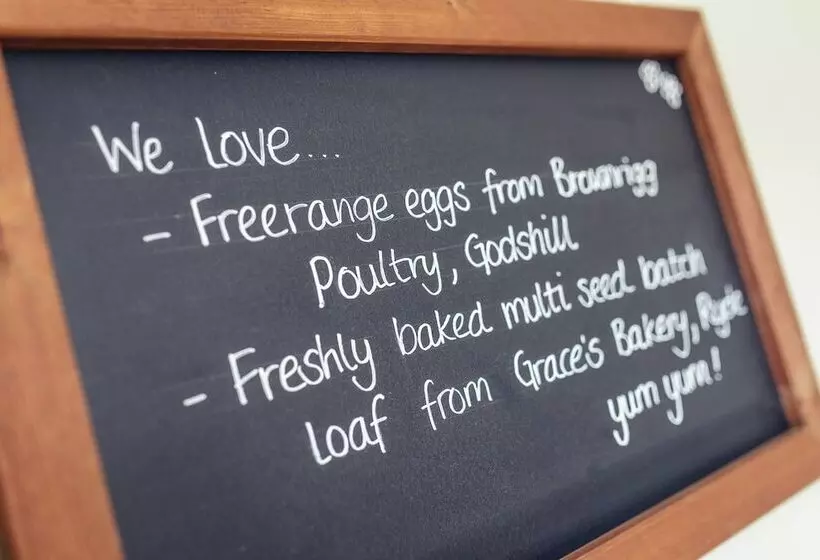 We love...
- Freerange eggs from Brownrigg
Poultry, Godshill
- Freshly baked multi seed batch
loaf from Grace's Bakery, Ryde
yum yum!